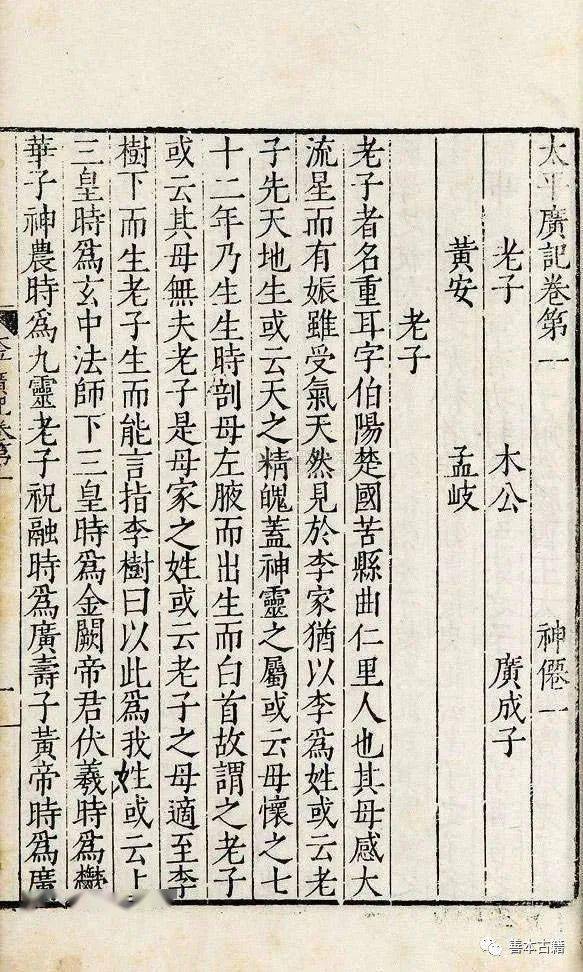 太平廣記卷第一 神僊一
老子 木公 廣成子
黄安 孟岐
老子
老子者名重耳字伯陽楚國苦縣曲仁里人也其母感大
流星而有娠雖受氣天然見於李家猶以李爲姓或云老
子先天地生或云天之精魄蓋神靈之屬或云母懷之七
十二年乃生生時剖母左腋而出生而白首故謂之老子
或云其母無夫老子是母家之姓或云老子之母適至李
樹下而生老子生而能言指李樹曰以此爲我姓或云上
三皇時爲玄中法師下三皇時爲金闕帝君伏羲時爲欝
華子神農時爲九靈老子祝融時爲廣壽子黃帝時爲廣
善本古籍